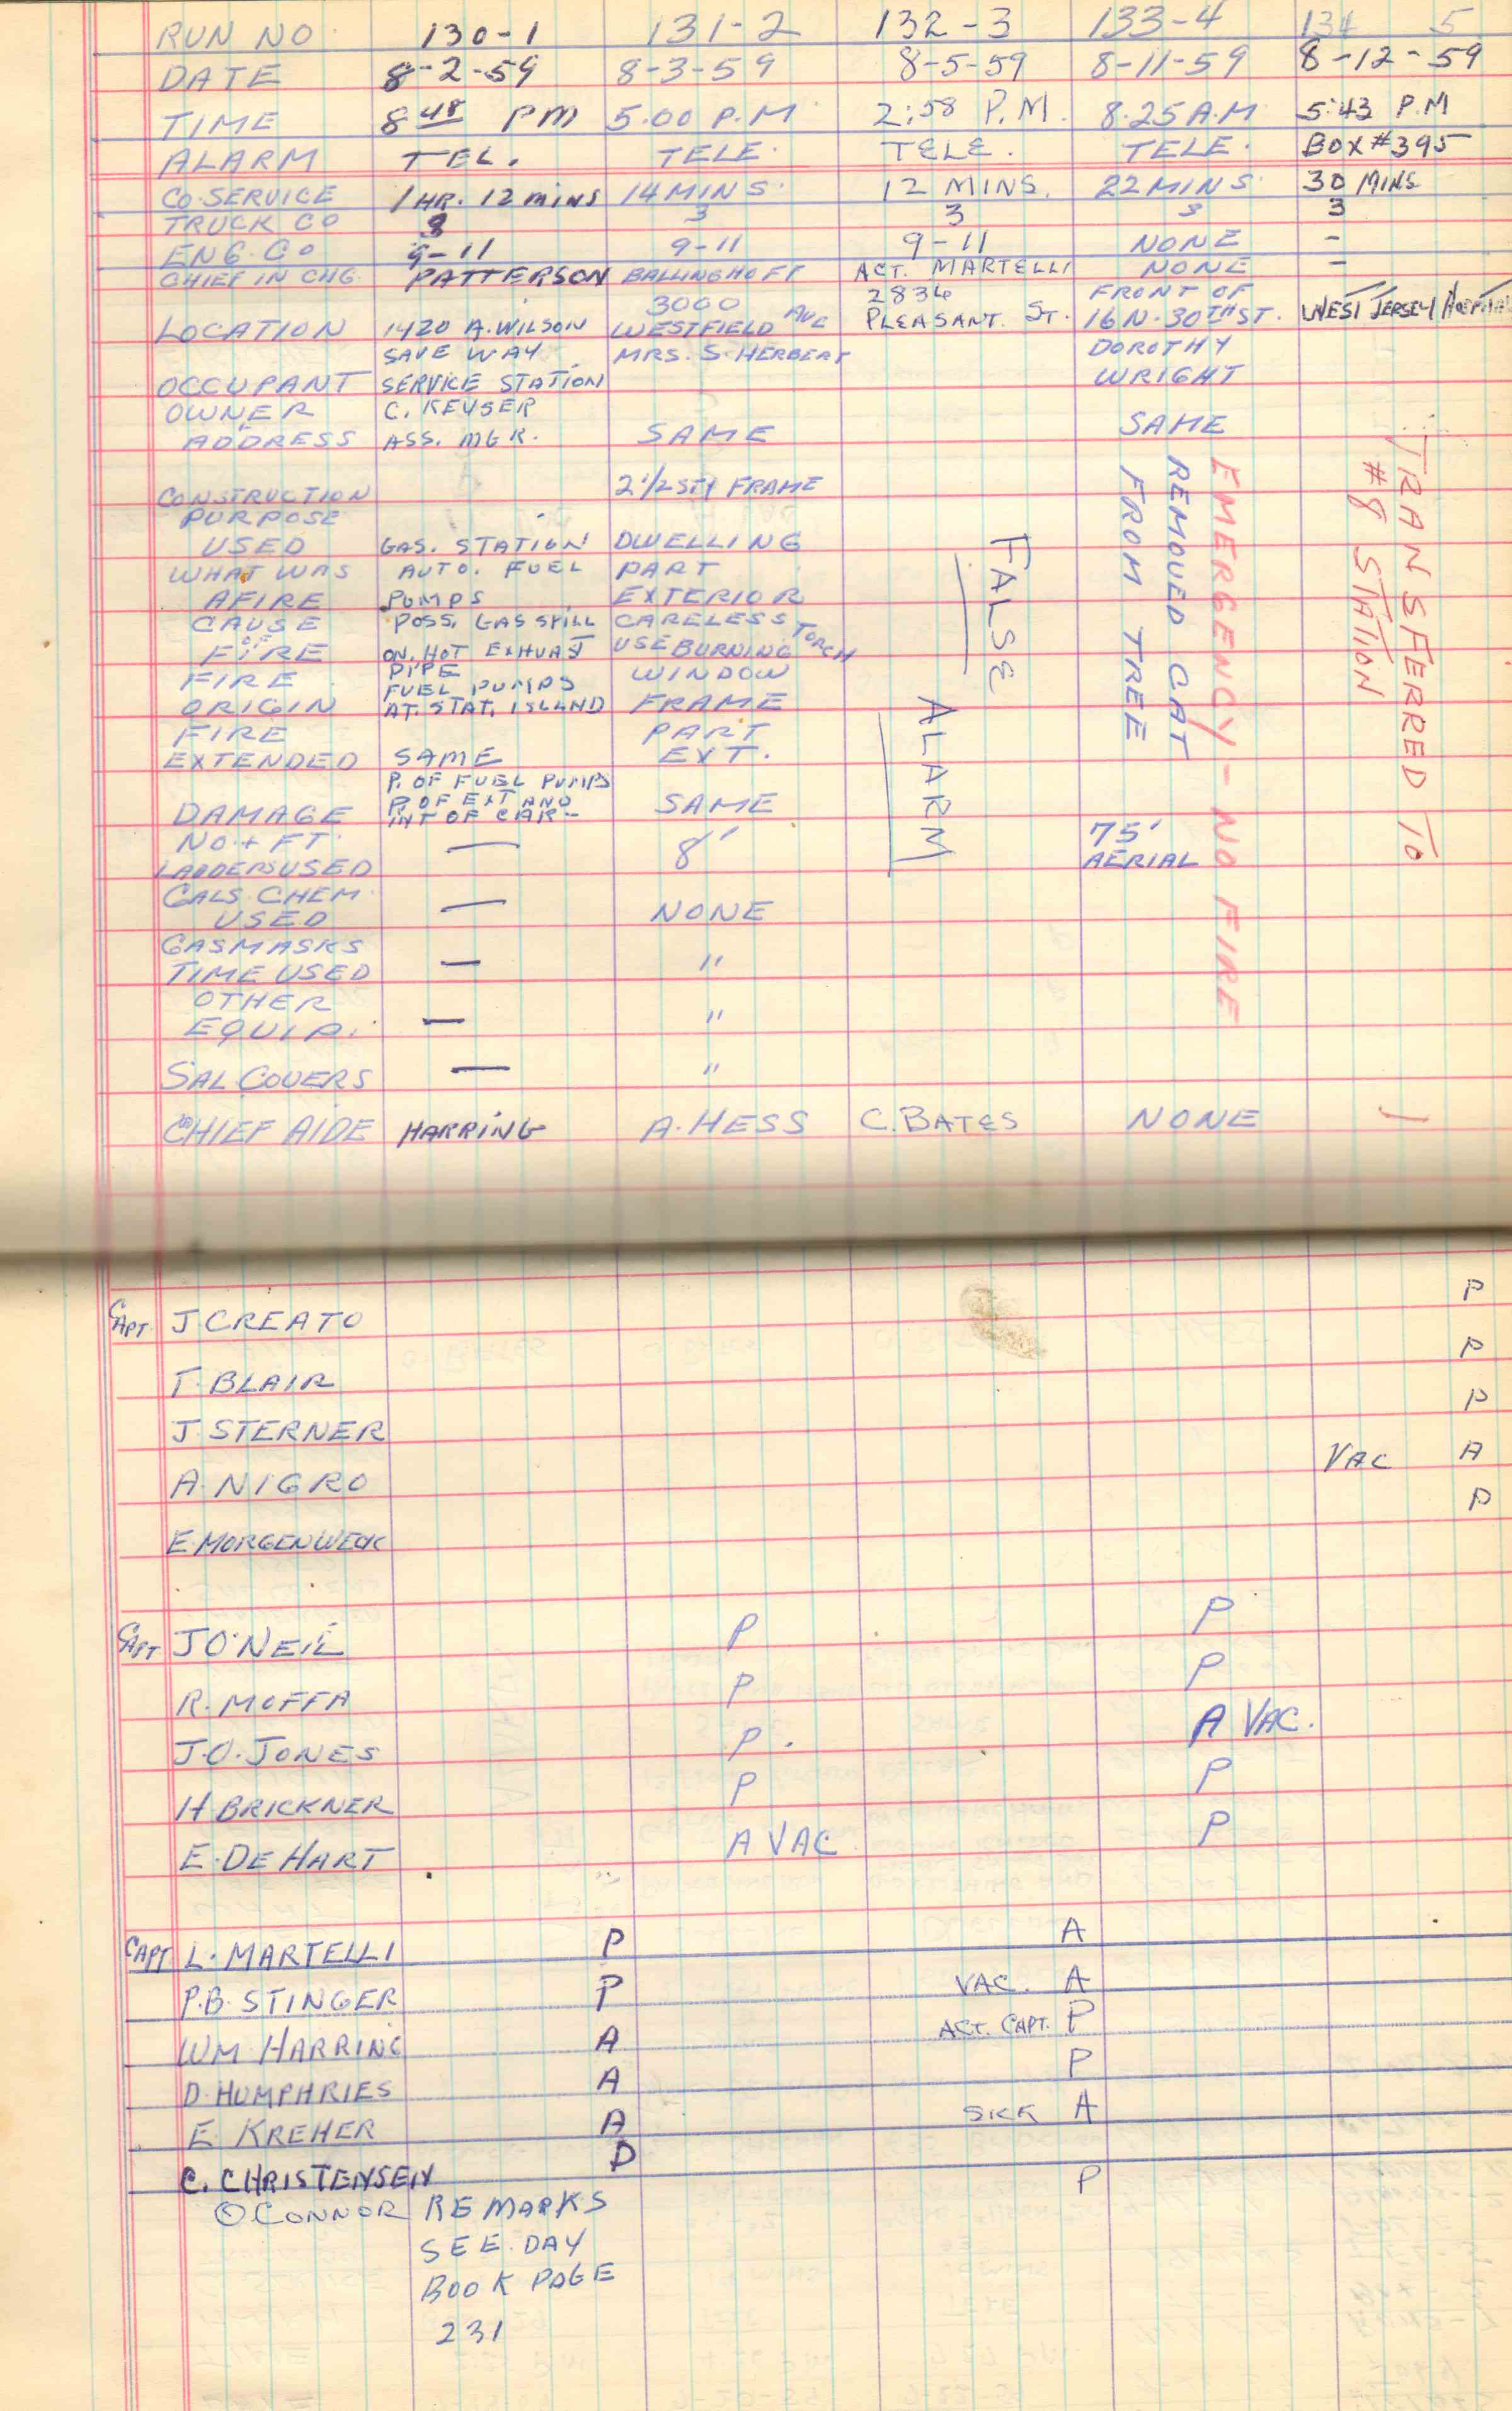 RUN NO. 130-1 131-2 132-3 133-4 134 5
DATE 8-2-59 8-3-59 8-5-59 8-11-59 8-12-59
TIME 8 48 PM 5.00 P.M 2:58 P.M. 8.25 A.M 5:43 P.M
ALARM TEL. TELE. TELE. TELE. BOX #395
CO. SERVICE 1 HR. 12 mins 14 MINS. 12 MINS. 22 MINS. 30 MINS
TRUCK CO 3 3 3 3 3
ENG. CO 9-11 9-11 9-11 NONE -
CHIEF IN CHG. PATTERSON BALLINGHOFF ACT. MARTELLI NONE -
3000 2836 FRONT OF
LOCATION 1420 A. WILSON WESTFIELD AVE PLEASANT. ST. 16 N. 30TH ST. WEST JERSEY HOSPITAL
SAVE WAY MRS. S. HERBERT DOROTHY
OCCUPANT SERVICE STATION WRIGHT
OWNER C. KEYSER
ADDRESS ASS. MGR. SAME SAME
CONSTRUCTION 2 1/2 STY FRAME
PURPOSE
USED GAS. STATION DWELLING
WHAT WAS AUTO. FUEL PART
AFIRE PUMPS EXTERIOR
CAUSE POSS. GAS SPILL CARELESS
OF
FIRE ON. HOT EXHUAST USE BURNING TORCH
PIPE
FIRE FUEL PUMPS WINDOW
ORIGIN AT. STAT. ISLAND FRAME
FIRE PART
EXTENDED SAME EXT.
P. OF FUEL PUMPS
P. OF EXT AND
DAMAGE INT OF CAR- SAME
NO. + FT. — 8' 75'
LADDERS USED AERIAL
GALS. CHEM.
USED — NONE
GASMASKS
TIME USED — "
OTHER
EQUIP. — "
SAL COVERS — "
CHIEF AIDE HARRING A. HESS C. BATES NONE
FALSE
ALARM
EMERGENCY - NO FIRE
REMOVED CAT
FROM TREE
TRANSFERRED TO
#8 STATION
CAPT. J. CREATO P
T. BLAIR P
J. STERNER P
A. NIGRO VAC A
E. MORGENWECK P
CAPT J O'NEIL P P
R. MOFFA P P
J.O. JONES P. A VAC.
H BRICKNER P P
E. DE HART A VAC P
CAPT L. MARTELLI P A
P.B. STINGER P VAC. A
WM HARRING A ACT. CAPT. P
D. HUMPHRIES A P
E. KREHER A SICK A
C. CHRISTENSEN P
O CONNOR P
REMARKS
SEE. DAY
BOOK PAGE
231